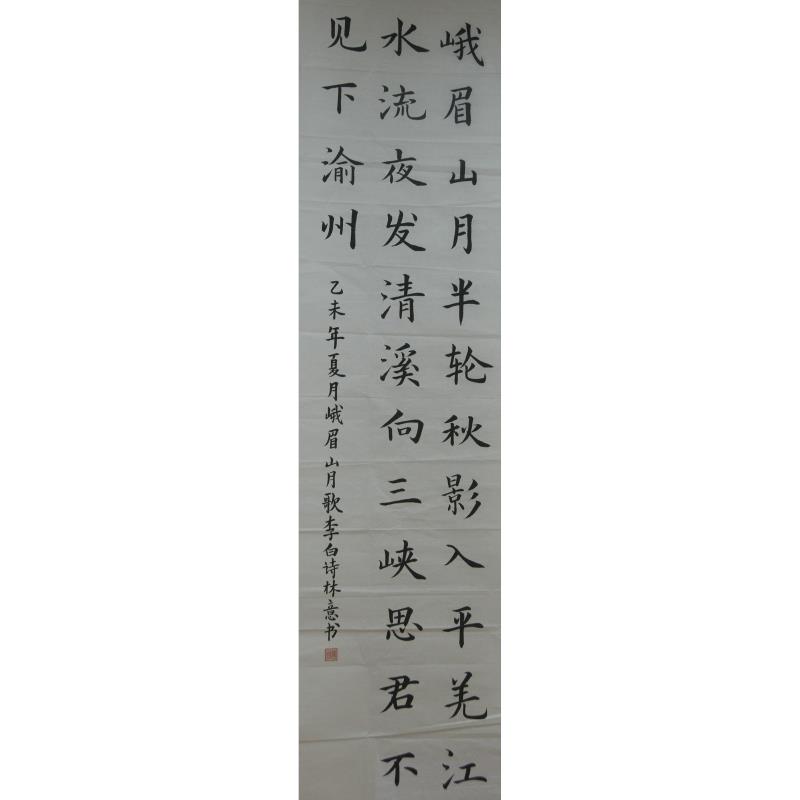 峨眉山月半轮秋影入平羌江
水流夜发清溪向三峡思君不
见下渝州
乙未年夏月峨眉山月歌李白诗林意书